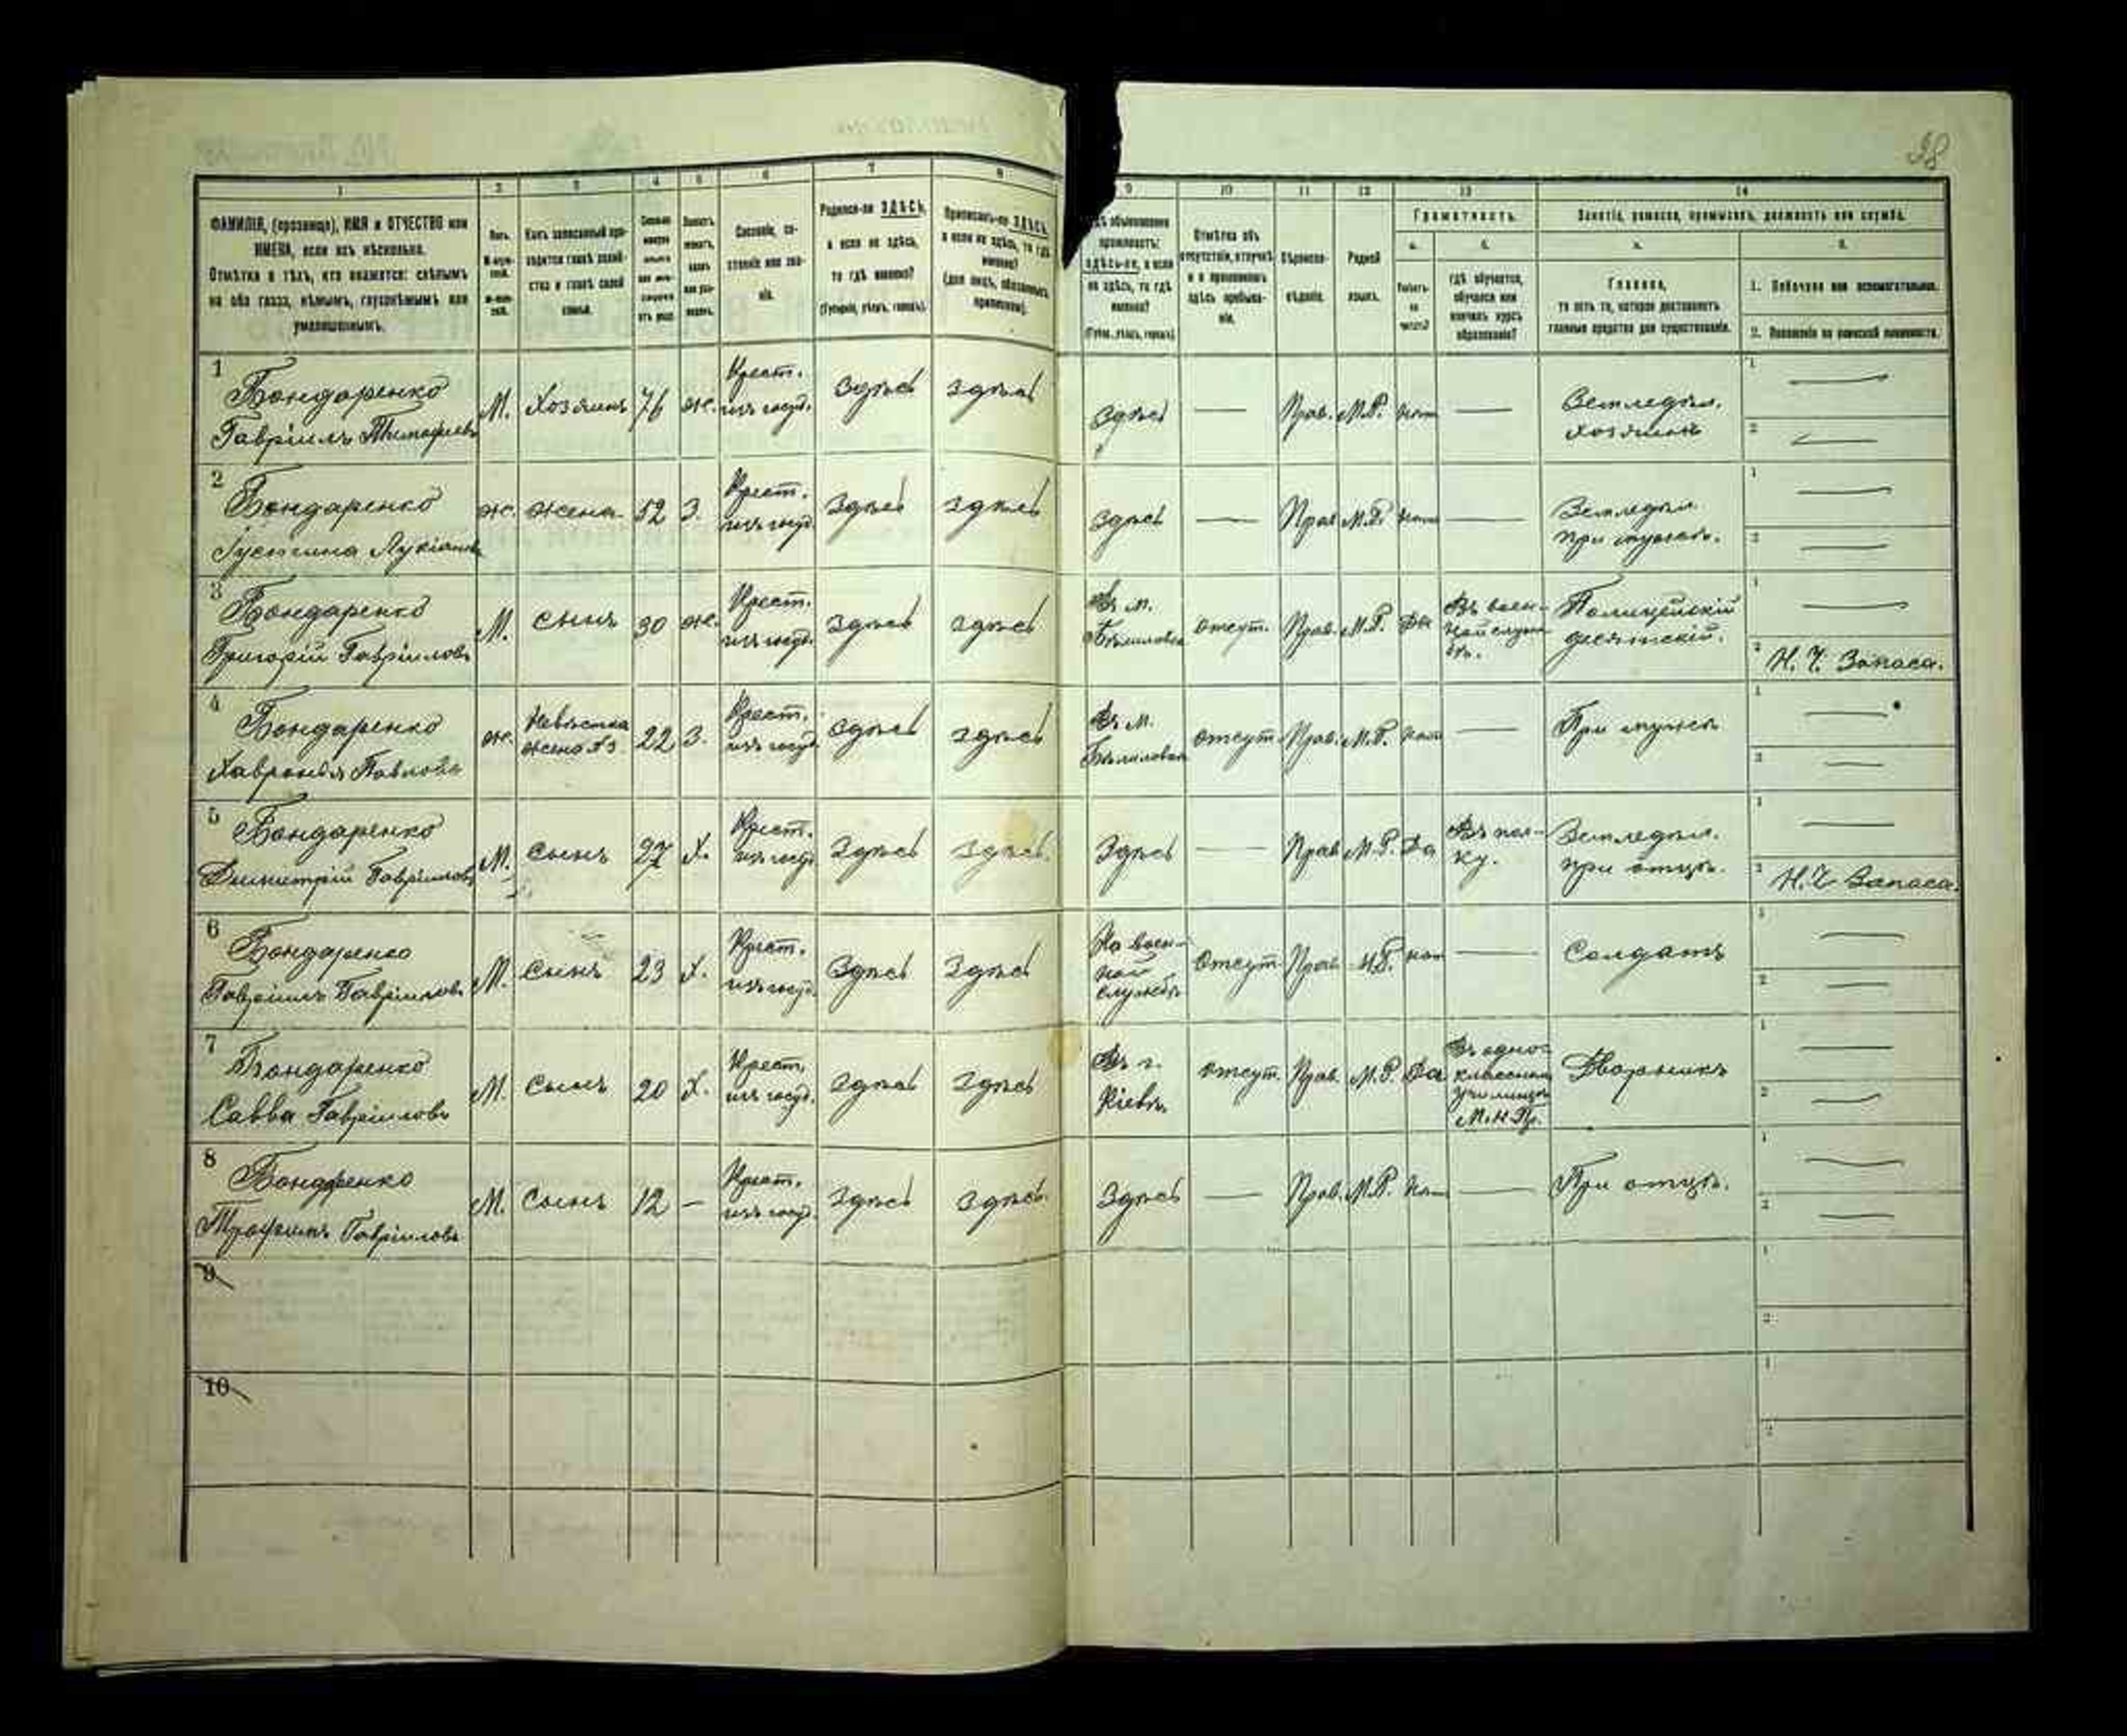 38
1 2 3 4 5 6 7 8
ФАМИЛІЯ, (прозвище), ИМЯ и ОТЧЕСТВО или
ИМЕНА, если ихъ нѣсколько.
Отмѣтка о тѣхъ, кто окажется: слѣпымъ
на оба глаза, нѣмымъ, глухонѣмымъ или
умалишеннымъ.
Полъ.
Какъ записанный при-
ходится главѣ хозяй-
ства и главѣ своей
семьи.
Сословіе, со-
стояніе или зва-
ніе.
Родился-ли ЗДѢСЬ,
а если не здѣсь,
то гдѣ именно?
(Губернія, уѣздъ, городъ).
Приписанъ-ли ЗДѢСЬ,
а если не здѣсь, то гдѣ
именно?
(для лицъ, обязанныхъ
припискою).
9 10 11 12 13 14
обыкновенно
проживаетъ:
здѣсь-ли, а если
не здѣсь, то гдѣ
именно?
(Губ., уѣздъ, городъ).
Отмѣтка объ
отсутствіи, отлучкѣ
и о временномъ
здѣсь пребыва-
ніи.
Вѣроиспо-
вѣданіе.
Родной
языкъ.
Грамотность.
а. б.
Умѣетъ-
ли
читать?
гдѣ обучается,
обучался или
кончилъ курсъ
образованія?
Занятіе, ремесло, промыселъ, должность или служба.
а. б.
Главное,
то есть то, которое доставляетъ
главныя средства для существованія.
1. Побочное или вспомогательное.
2. Положеніе по воинской повинности.
1 Бондаренко
Гавріилъ Тимофеевъ
М. Хозяинъ 76 ж. Крест. изъ госуд. Здѣсь здѣсь здѣсь — Прав. М.Р. нѣт — Земледѣл. хозяинъ 1 — 2 —
2 Бондаренко
Іустина Лукіанова
ж. жена 52 З. Крест. изъ госуд. Здѣсь здѣсь здѣсь — Прав. М.Р. нѣт — Земледѣл. при мужѣ. 1 — 2 —
3 Бондаренко
Григорій Гавріиловъ
М. сынъ 30 ж. Крест. изъ госуд. Здѣсь здѣсь Въ м. Бѣлиловка отсут. Прав. М.Р. Да Въ воен- ной служ бѣ. Полицейскій десятскій. 1 — 2 Н. Ч. Запаса.
4 Бондаренко
Хавронія Павлова
ж. Невѣстка жена №3 22 З. Крест. изъ госуд. Здѣсь здѣсь Въ м. Бѣлиловка отсут. Прав. М.Р. нѣт — При мужѣ 1 — 2 —
5 Бондаренко
Димитрій Гавріиловъ
М. сынъ 27 Х. Крест. изъ госуд. Здѣсь Здѣсь Здѣсь — Прав. М.Р. Да Въ пол- ку. Земледѣл. при отцѣ. 1 — 2 Н. Ч. Запаса.
6 Бондаренко
Гавріилъ Гавріиловъ
М. сынъ 23 Х. Крест. изъ госуд. Здѣсь Здѣсь На воен- ной службѣ Отсут. Прав. М.Р. нѣт — Солдатъ 1 — 2 —
7 Бондаренко
Савва Гавріиловъ
М. сынъ 20 Х. Крест. изъ госуд. Здѣсь Здѣсь Въ г. Кіевѣ отсут. Прав. М.Р. Да Въ одно- классном училищѣ М.Н.Пр. Дворникъ 1 — 2 —
8 Бондаренко
Трофимъ Гавріиловъ
М. Сынъ 12 — Крест. изъ госуд. Здѣсь Здѣсь Здѣсь — Прав. М.Р. нѣт — При отцѣ. 1 — 2 —
9 1 2
10 1 2